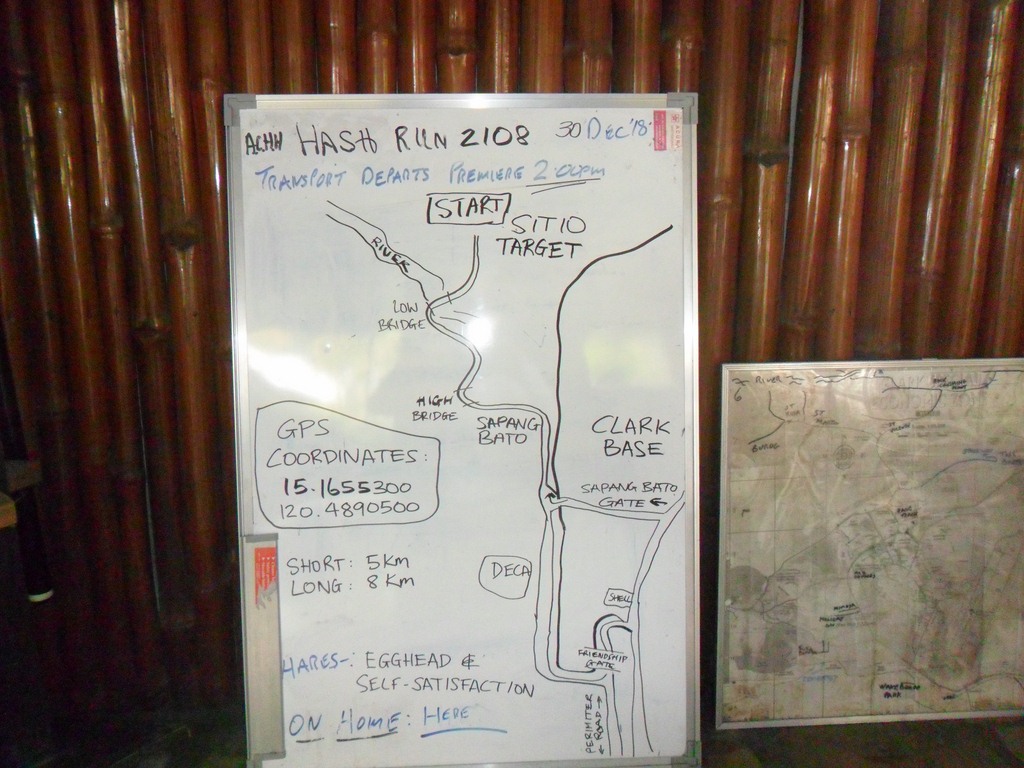 ACHHH HASH RUN 2108 30 Dec '18
TRANSPORT DEPARTS PREMIERE 2:00pm
START
SITIO
TARGET
RIVER
LOW
BRIDGE
HIGH
BRIDGE
SAPANG
BATO
CLARK
BASE
GPS
COORDINATES:
15.1655300
120.4890500
SAPANG BATO
GATE ←
SHORT: 5 Km
LONG: 8 Km
DECA
SHELL
FRIENDSHIP
GATE
HARES-: EGGHEAD &
SELF-SATISFACTION
ON HOME: HERE
PERIMITER
ROAD
RIVER